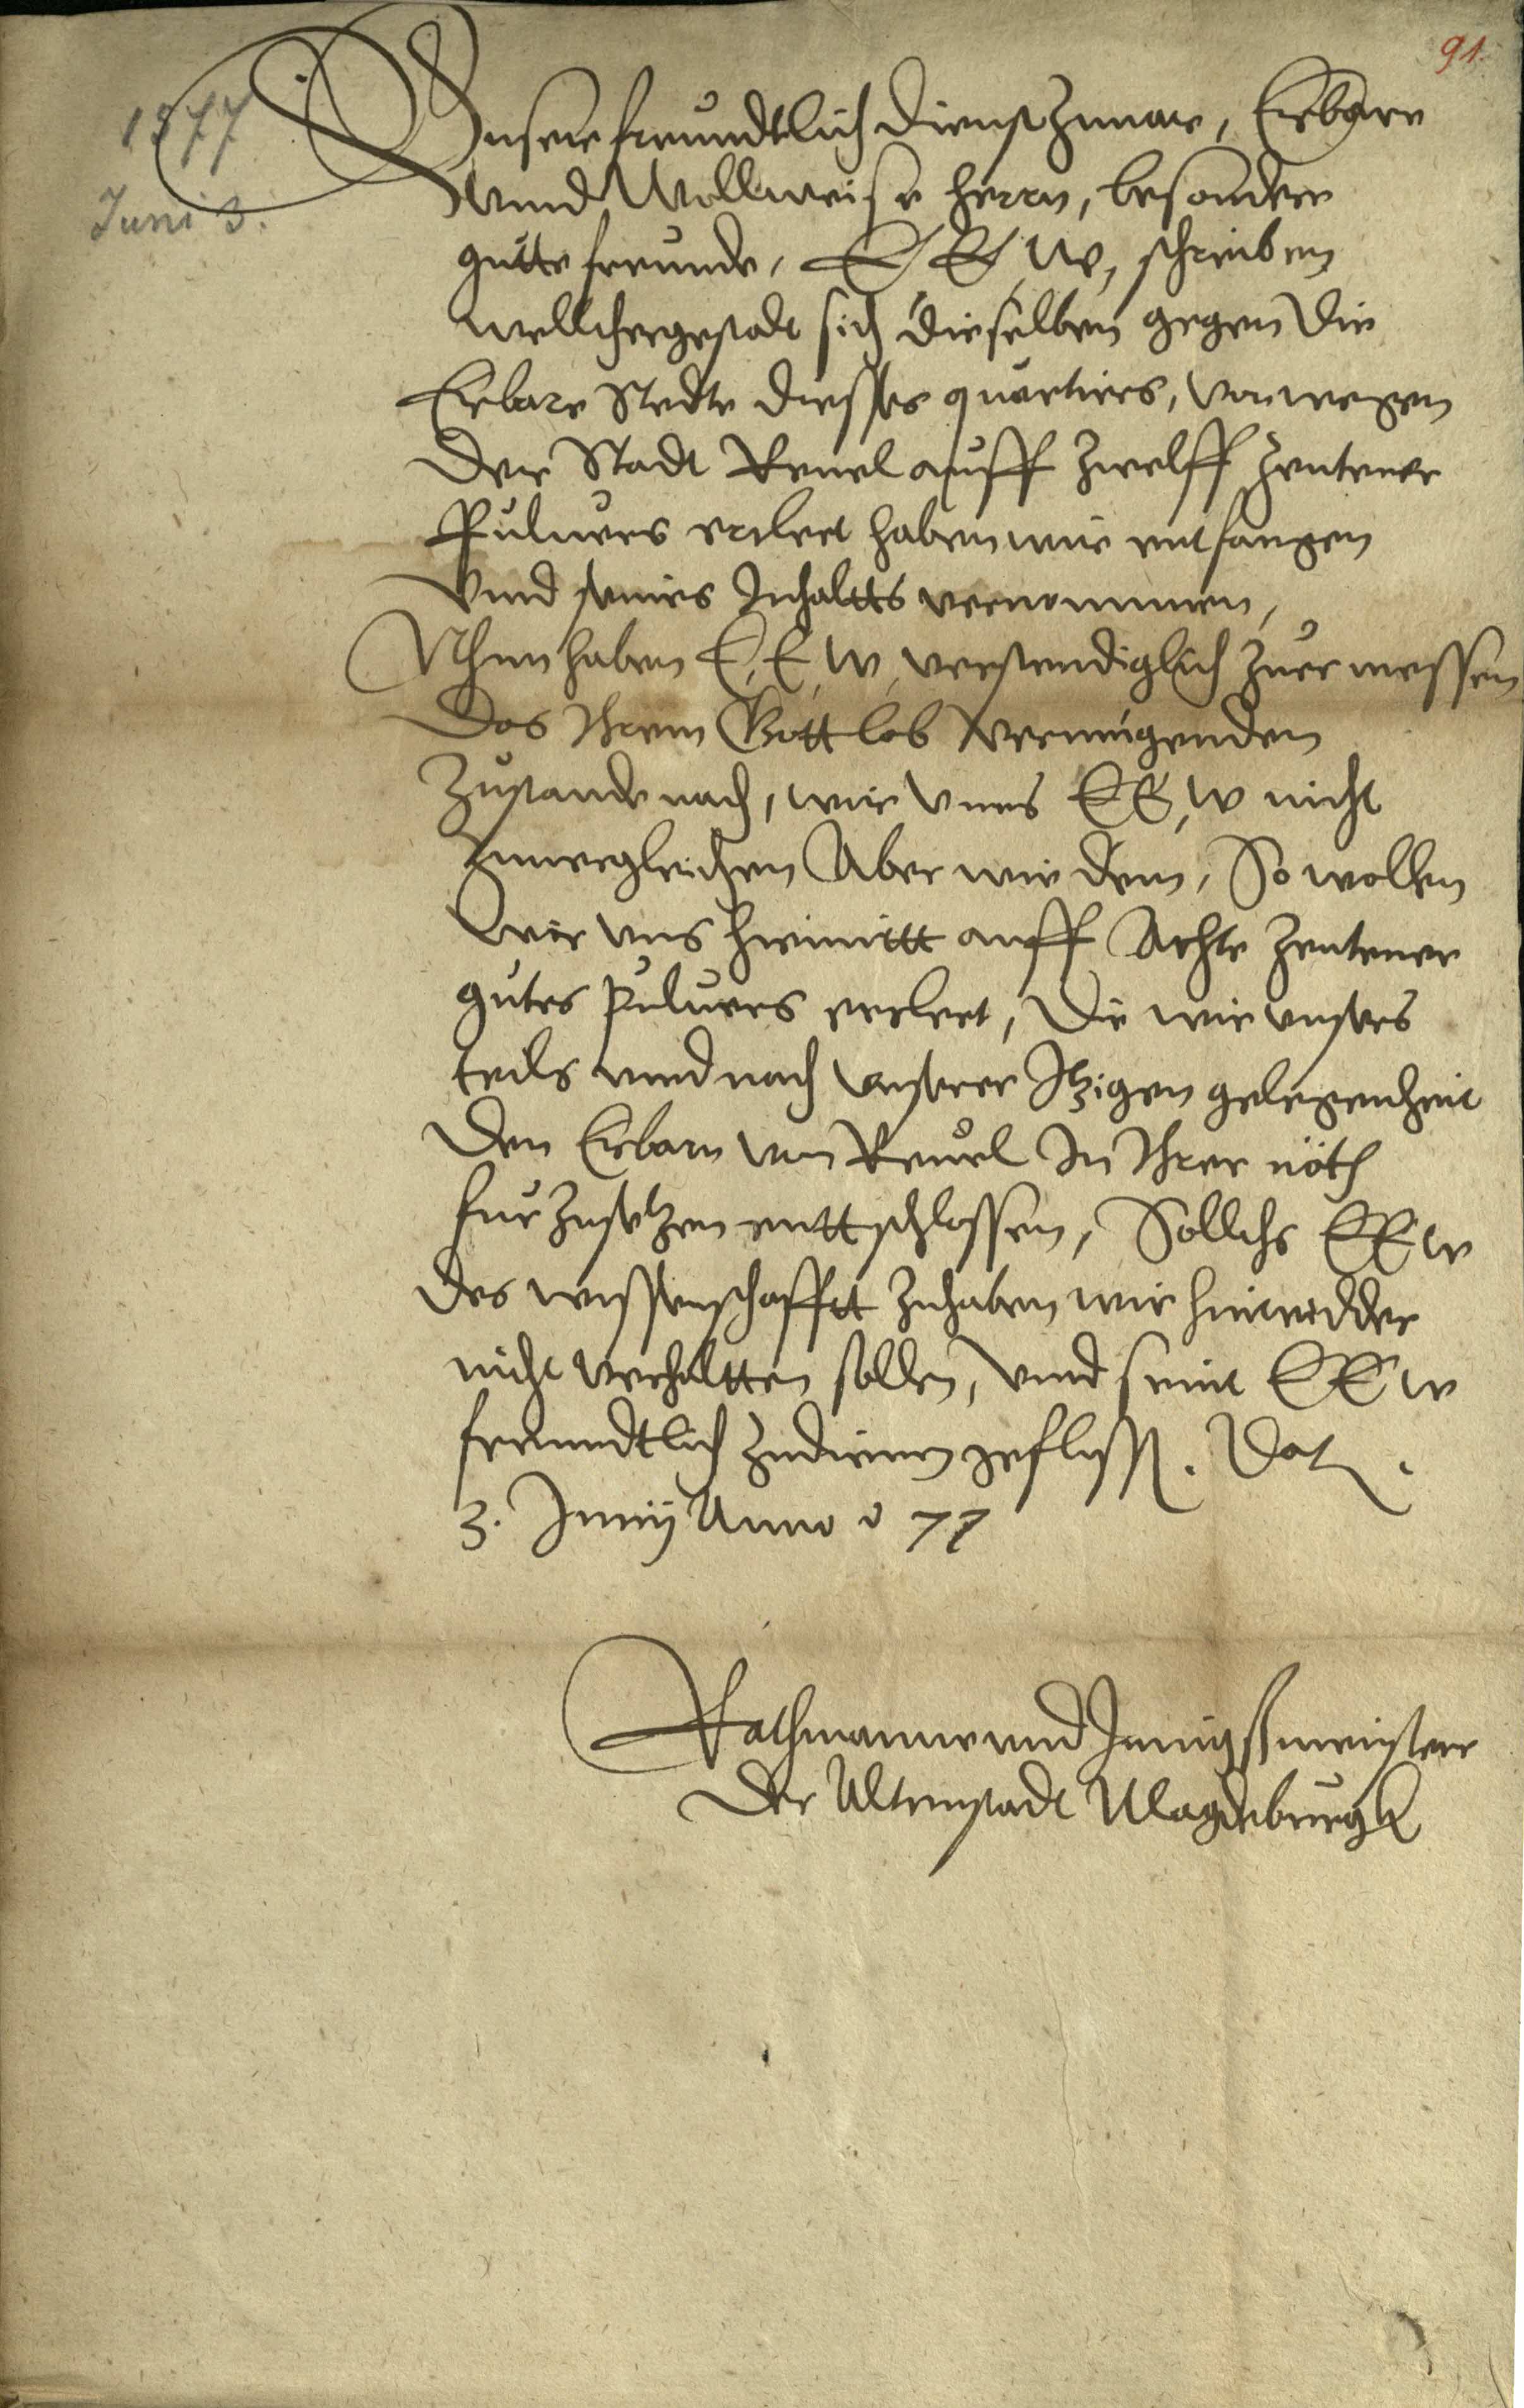 91.
1577
Juni 3.
Vnsere freundtlich dienst zuuor, Erbare
vnnd Wollweise herrn, besondere
gutte freunde, E E W, schreiben
wellchergestadt sich dieselben gegen die
Erbare Stedte diesses quartiers, von wegen
der Stadt Reuel auff zwelff Zentener
Puluers ercleret haben wir entfangen
vnnd seines Inhaltts vernommen,
Nhun haben E, E, W, verstendiglich zuermessen
das Ihrem Gott lob vermügenden
Zustande nach, wir vnns E E, W nicht
zuuergleichen Aber wie dem, So wollen
wir vns hiemitt auff Achte Zentener
gutes puluers erclert, die wir vnsers
teils vnnd nach vnserer Itzigen gelegenheit
den Erbarn von Reuel In Ihrer nöth
furzusetzen enttschlossen, Sollichs E E W
des wissenschafft zuhaben wir hinwidder
nicht verhaltten sollen, vnnd seint E E W
freundtlich zudienen gefliss. Dat.
3. Junij Anno 77
Rathmanne vnnd Innigssmeistere
der Altenstadt Magdeburgk